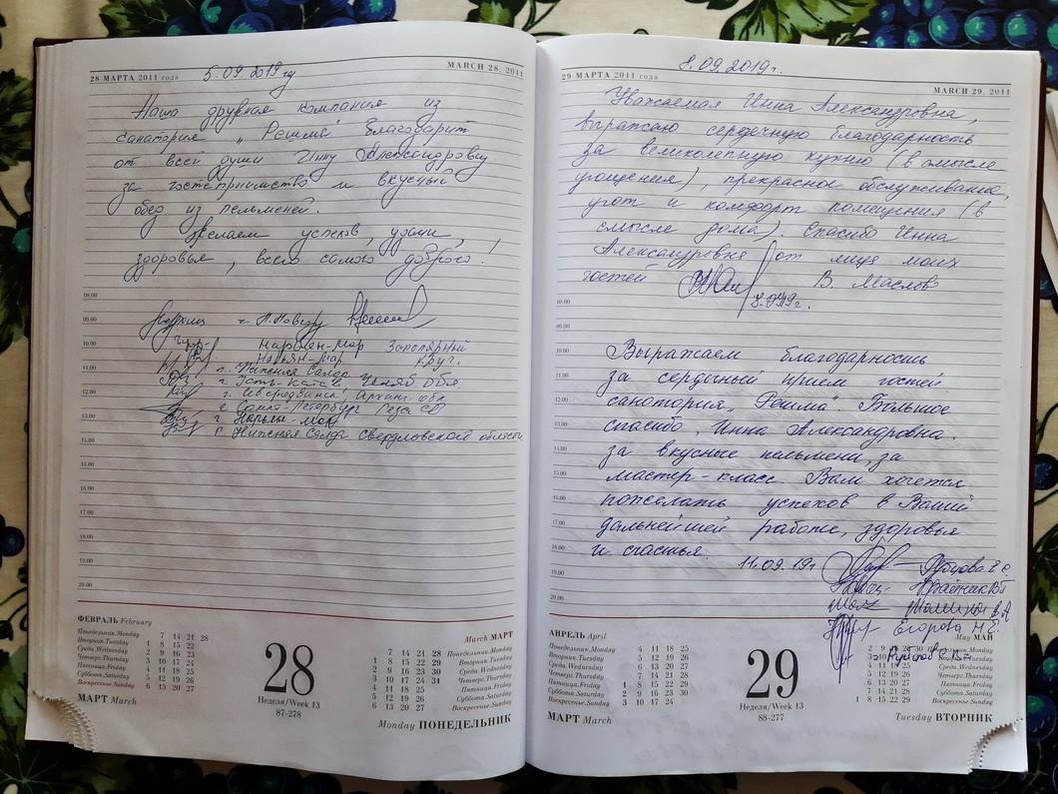 28 МАРТА 2011 года
5.09.2019 г
MARCH 28, 2011
Наша дружная компания из
санатория „Решма" благодарит
от всей души Инну Александровну
за гостеприимство и вкусный
обед из пельменей.
Желаем успехов, удачи,
здоровья, всего самого доброго!
08.00
09.00
10.00
Нарьян-Мар Заполярный
Нарьян-Мар круг.
11.00
г. Нижняя Салда
г. Усть-Катав Челяб обл
12.00
г. Северодвинск, Арханг. обл
г. Санкт-Петербург
13.00
г. Нарьян-Мар
г. Нижняя Салда Свердловской области
14.00
15.00
16.00
17.00
18.00
19.00
20.00
ФЕВРАЛЬ February
Понедельник.Monday 7 14 21 28
Вторник.Tuesday 1 8 15 22
Среда.Wednesday 2 9 16 23
Четверг.Thursday 3 10 17 24
Пятница.Friday 4 11 18 25
Суббота.Saturday 5 12 19 26
Воскресенье.Sunday 6 13 20 27
МАРТ March
28
Неделя/Week 13
87-278
March МАРТ
7 14 21 28 Понедельник.Monday
1 8 15 22 29 Вторник.Tuesday
2 9 16 23 30 Среда.Wednesday
3 10 17 24 31 Четверг.Thursday
4 11 18 25 Пятница.Friday
5 12 19 26 Суббота.Saturday
6 13 20 27 Воскресенье.Sunday
Monday ПОНЕДЕЛЬНИК
29 МАРТА 2011 года
8.09.2019г.
MARCH 29, 2011
Уважаемая Инна Александровна,
выражаю сердечную благодарность
за великолепную кухню (в смысле
угощения), прекрасное обслуживание,
уют и комфорт помещения (в
смысле дома). Спасибо Инна
Александровна от лица моих
гостей В. Маслов
09.00
10.00
Выражаем благодарность
за сердечный прием гостей
11.00
санатория „Решма". Большое
12.00
спасибо, Инна Александровна.
13.00
за вкусные пельмени, за
14.00
мастер-класс Вам хочется
15.00
пожелать успехов в Вашей
16.00
17.00
дальнейшей работе, здоровья
18.00
и счастья.
11.09.19г
19.00
20.00
Егорова Н.Е.
АПРЕЛЬ April
Понедельник.Monday 4 11 18 25
Вторник.Tuesday 5 12 19 26
Среда.Wednesday 6 13 20 27
Четверг.Thursday 7 14 21 28
Пятница.Friday 1 8 15 22 29
Суббота.Saturday 2 9 16 23 30
Воскресенье.Sunday 3 10 17 24
МАРТ March
29
Неделя/Week 13
88-277
May МАЙ
Понедельник.Monday
Вторник.Tuesday
Среда.Wednesday
Четверг.Thursday
6 13 20 27 Пятница.Friday
7 14 21 28 Суббота.Saturday
1 8 15 22 29 Воскресенье.Sunday
Tuesday ВТОРНИК